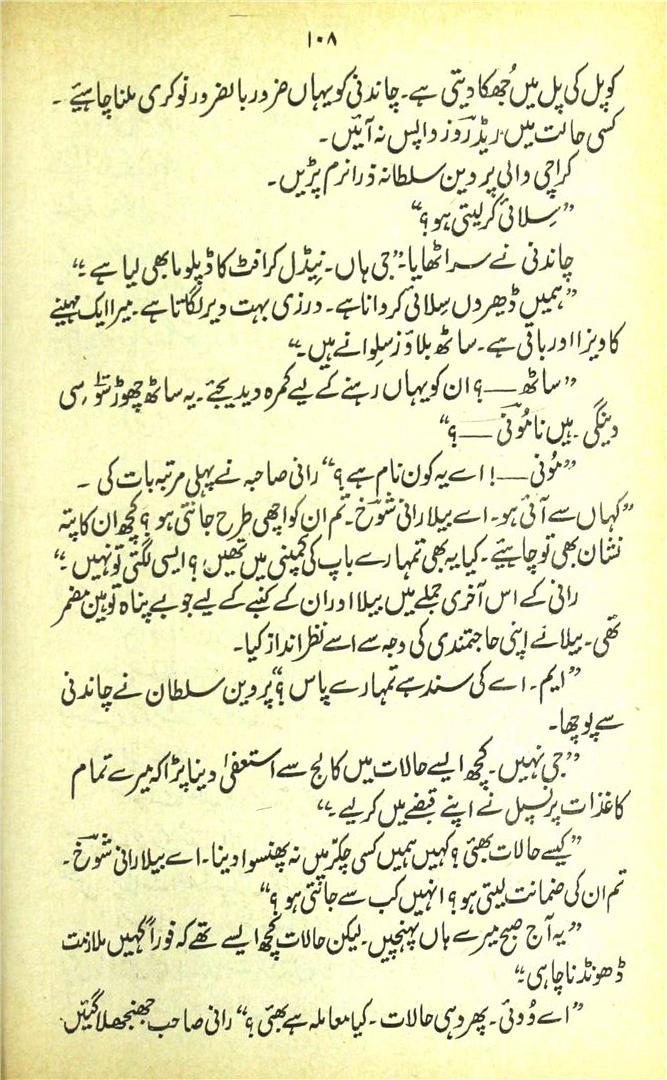 ۱۰۸
کو پل کی پل میں جُھکا دیتی ہے۔ چاندنی کو یہاں ضرور بالضرور نوکری ملنا چاہیئے ۔
کسی حالت میں ریڈ روز واپس نہ آئیں۔
کراچی والی پروین سلطانہ ذرا نرم پڑیں۔
”سِلائی کر لیتی ہو؟“
چاندنی نے سر اٹھایا۔ ”جی ہاں۔ نیڈل کرافٹ کا ڈپلوما بھی لیا ہے ۔“
”ہمیں ڈھیروں سِلائی کروانا ہے۔ درزی بہت دیر لگاتا ہے۔ میرا ایک مہینے
کا ویزا اور باقی ہے۔ ساٹھ بلاؤز سِلوانے ہیں۔“
”ساٹھ ــــ؟ ان کو یہاں رہنے کے لیے کمرہ دیدیجئے۔ یہ ساٹھ چھوڑ سَو سی
دینگی۔ ہیں نا مُونی ــــ؟“
”مُونی ــــ! اے یہ کون نام ہے؟“ رانی صاحبہ نے پہلی مرتبہ بات کی ۔
”کہاں سے آئی ہو۔ اے بیلا رانی شوخ۔ تم ان کو اچھی طرح جانتی ہو؟ کچھ ان کا پتہ
نشان بھی تو چاہیئے۔ کیا یہ بھی تمہارے باپ کی کمپنی میں تھیں؟ ایسی لگتی تو نہیں ۔“
رانی کے اس آخری جملے میں بیلا اور ان کے کنبے کے لیے جو بے پناہ توہین مضمر
تھی۔ بیلا نے اپنی حاجتمندی کی وجہ سے اسے نظر انداز کیا۔
”ایم۔ اے کی سند ہے تمہارے پاس؟“ پروین سلطان نے چاندنی
سے پوچھا۔
”جی نہیں۔ کچھ ایسے حالات میں کالج سے استعفیٰ دینا پڑا کہ میرے تمام
کاغذات پرنسپل نے اپنے قبضے میں کر لیے ۔“
”کیسے حالات بھئی؟ کہیں ہمیں کسی چکّر میں نہ پھنسوا دینا۔ اے بیلا رانی شوخ۔
تم ان کی ضمانت لیتی ہو؟ انہیں کب سے جانتی ہو؟“
”یہ آج صبح میرے ہاں پہنچیں۔ لیکن حالات کچھ ایسے تھے کہ فوراً کہیں ملازمت
ڈھونڈنا چاہی۔“
”اے وُوئی۔ پھر وہی حالات۔ کیا معاملہ ہے بھئی؟“ رانی صاحب جھنجھلا گئیں